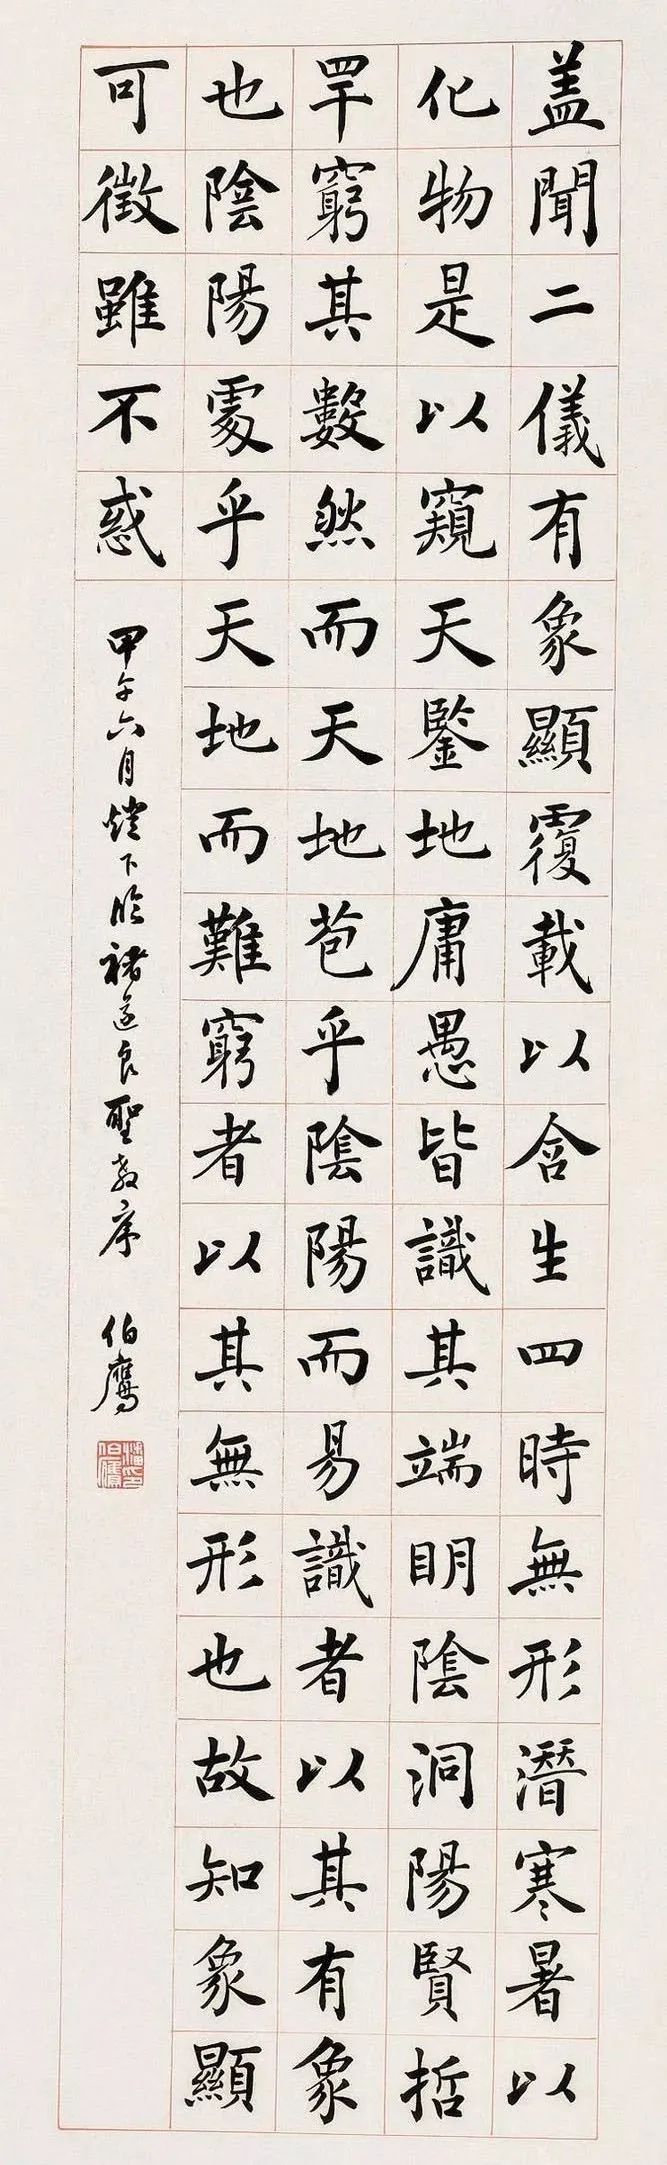 盖聞二儀有象顯覆載以含生四時無形潛寒暑以
化物是以窺天鑒地庸愚皆識其端明陰洞陽賢哲
罕窮其數然而天地苞乎陰陽而易識者以其有象
也陰陽處乎天地而難窮者以其無形也故知象顯
可徵雖不惑
甲午六月燈下臨褚遂良聖教序
伯鷹
潘伯鷹印